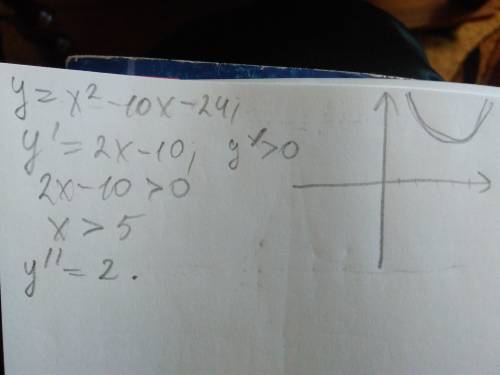 y = x² - 10x - 24;
y' = 2x - 10; y' > 0
2x - 10 > 0
x > 5
y'' = 2.